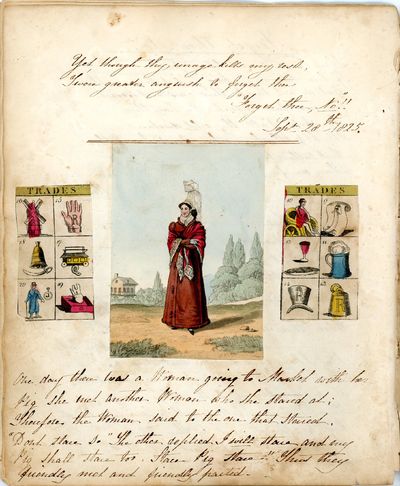 Yet though thy image kills my rest,
'Twere greater anguish to forget thee
"Forget thee, No"!!
Sept 28th 1825.
TRADES
TRADES
One day there was a Woman going to Market with her
Pig she met another Woman who she stared at;
Therefore the Woman said to the one that stared.
"Dont stare so" The other replied I will stare and my
Pig shall stare too. Stare Pig stare"!! Thus they
friendly met and friendly parted